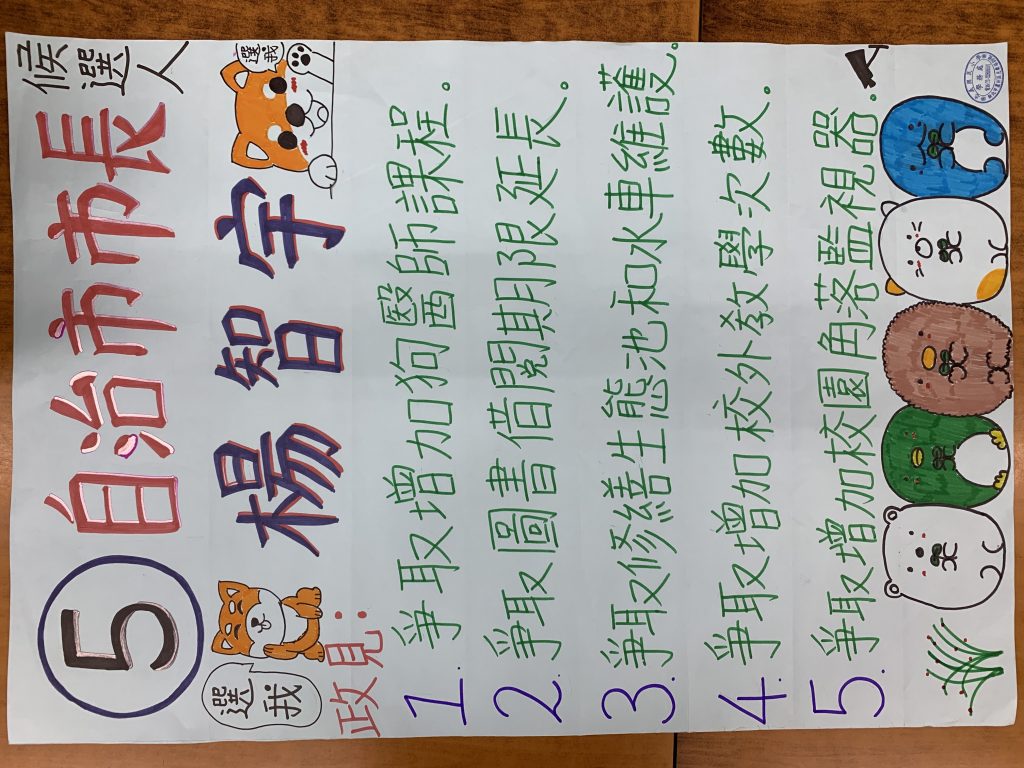 ⑤自治市市長候選人
楊智宇
選我
選我
政見：
1.爭取增加狗醫師課程。
2.爭取圖書借閱期限延長。
3.爭取修繕生態池和水車維護。
4.爭取增加校外教學次數。
5.爭取增加校園角落監視器。